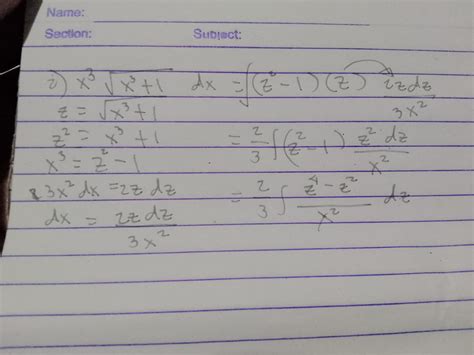 Name:
Section: Subject:
2) x³ √(x³+1) dx = ∫(z²-1)(z) 2z dz / 3x²
z = √(x³+1)
z² = x³+1 = 2/3 ∫(z²-1) z² dz / x²
x³ = z²-1
3x² dx = 2z dz = 2/3 ∫ z⁴-z² / x² dz
dx = 2z dz / 3x²